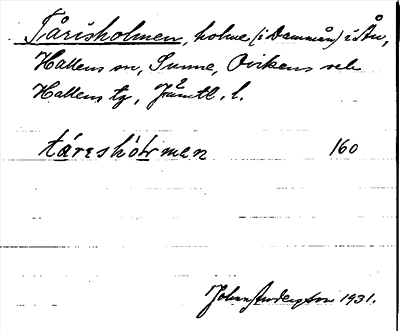 Tårisholmen, holme (i Dammån) i Ån,
Hallens sn, Sunne, Ovikens och
Hallens tg, Jämtl. l.
tárɛshórmen 160
John Anderzson 1931.